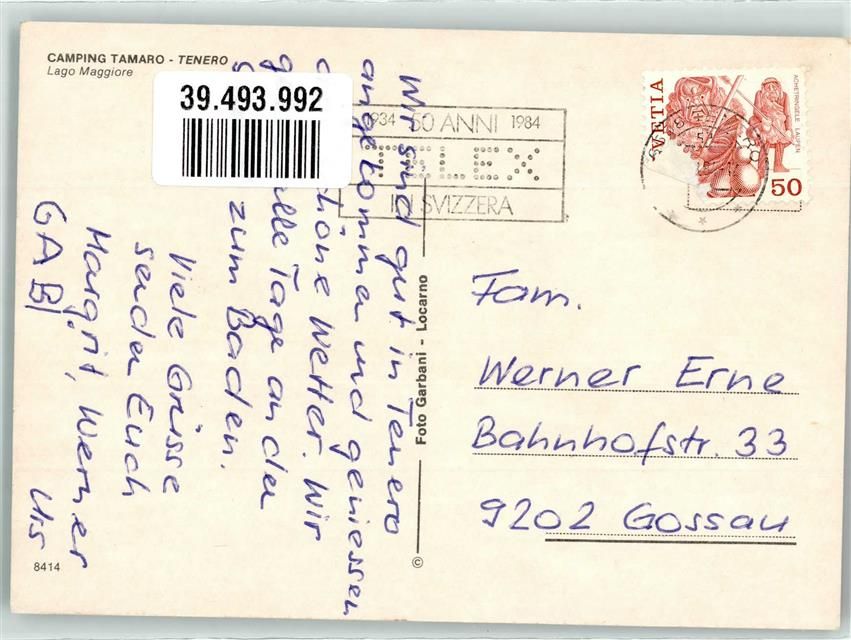 CAMPING TAMARO - TENERO
Lago Maggiore
39.493.992
1934 50 ANNI 1984
TELEX
IN SVIZZERA
HELVETIA
ACHETRINGELE LAUPEN
50
Wir sind gut in Tenero
angekommen und geniessen
schöne Wetter. Wir
alle Tage an den
zum Baden.
Viele Grüsse
senden Euch
Margrit, Werner
GABI Urs
Foto Garbani - Locarno
©
Fam.
Werner Erne
Bahnhofstr. 33
9202 Gossau
8414